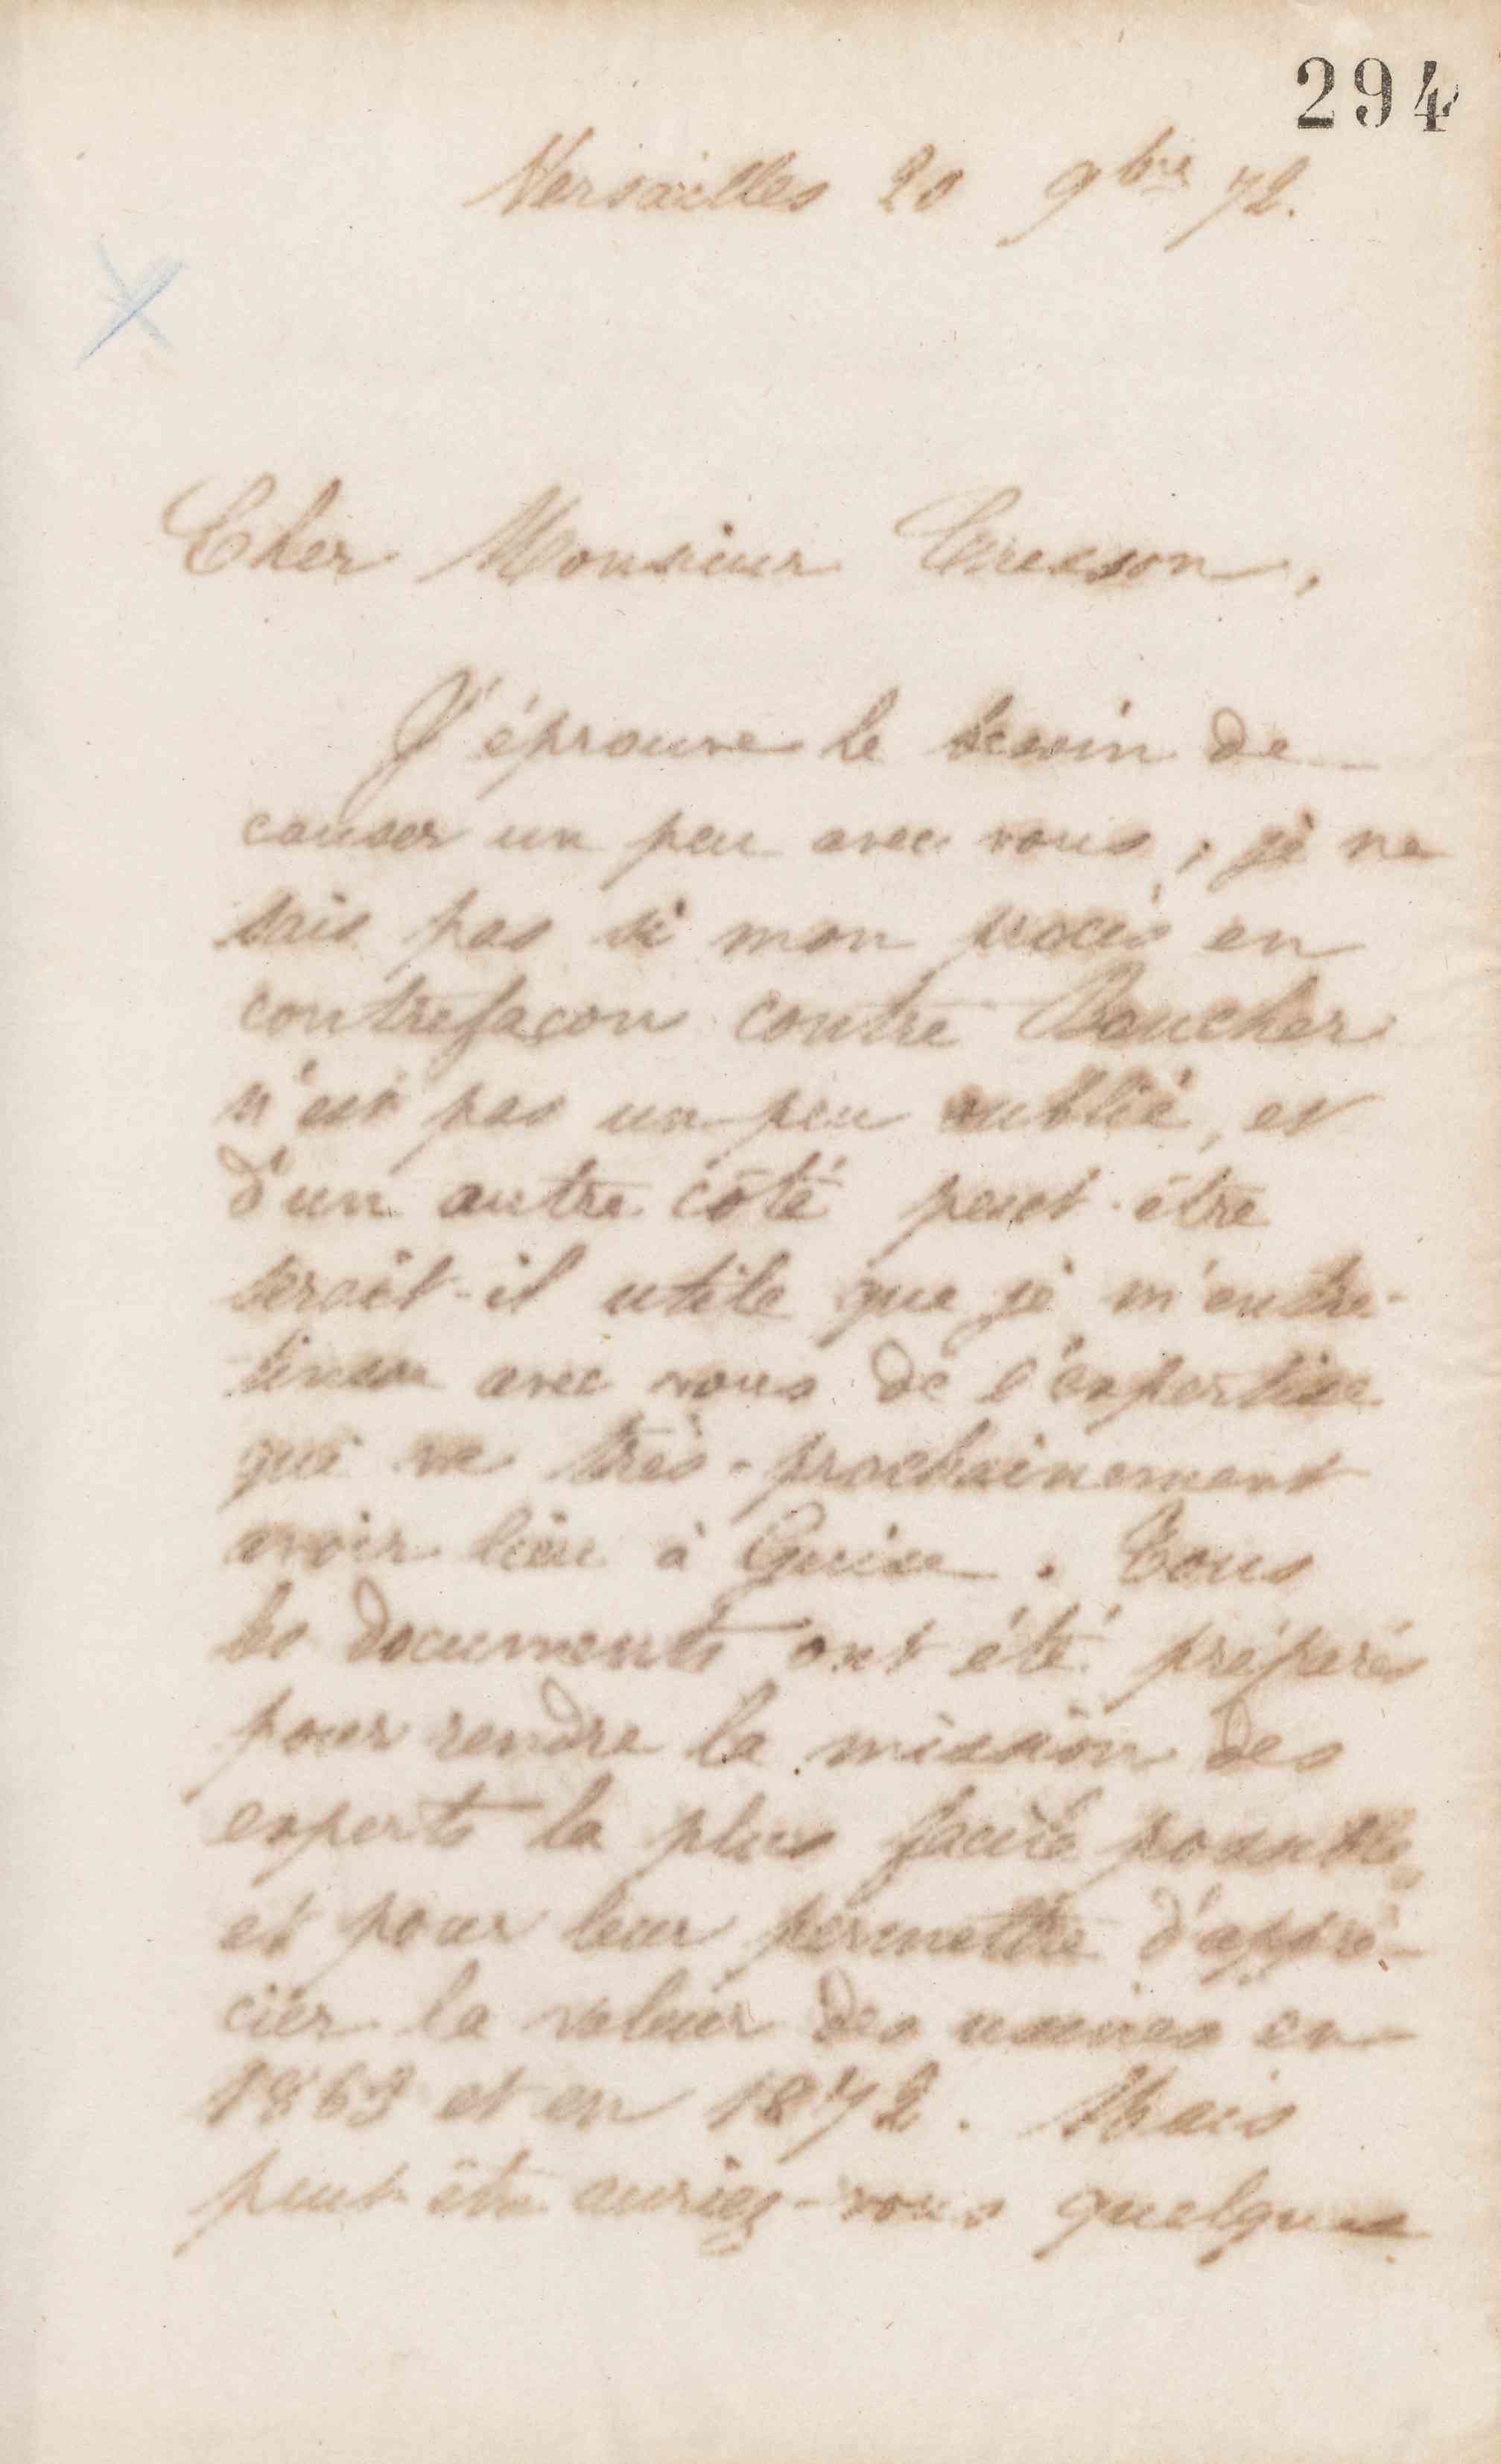 294
Versailles 20 9bre 72.
Cher Monsieur Cresson,
J'éprouve le besoin de
causer un peu avec vous, je ne
sais pas si mon procès en
contrefaçon contre Boucher
n'est pas un peu oublié, et
d'un autre côté peut-être
serait-il utile que je m'entre-
tinsse avec vous de l'expertise
qui va très-prochainement
avoir lieu à Guise. Tous
les documents ont été préparés
pour rendre la mission des
experts la plus facile possible,
et pour leur permettre d'appré-
cier la valeur des usines en
1863 et en 1872. Mais
peut-être auriez-vous quelques